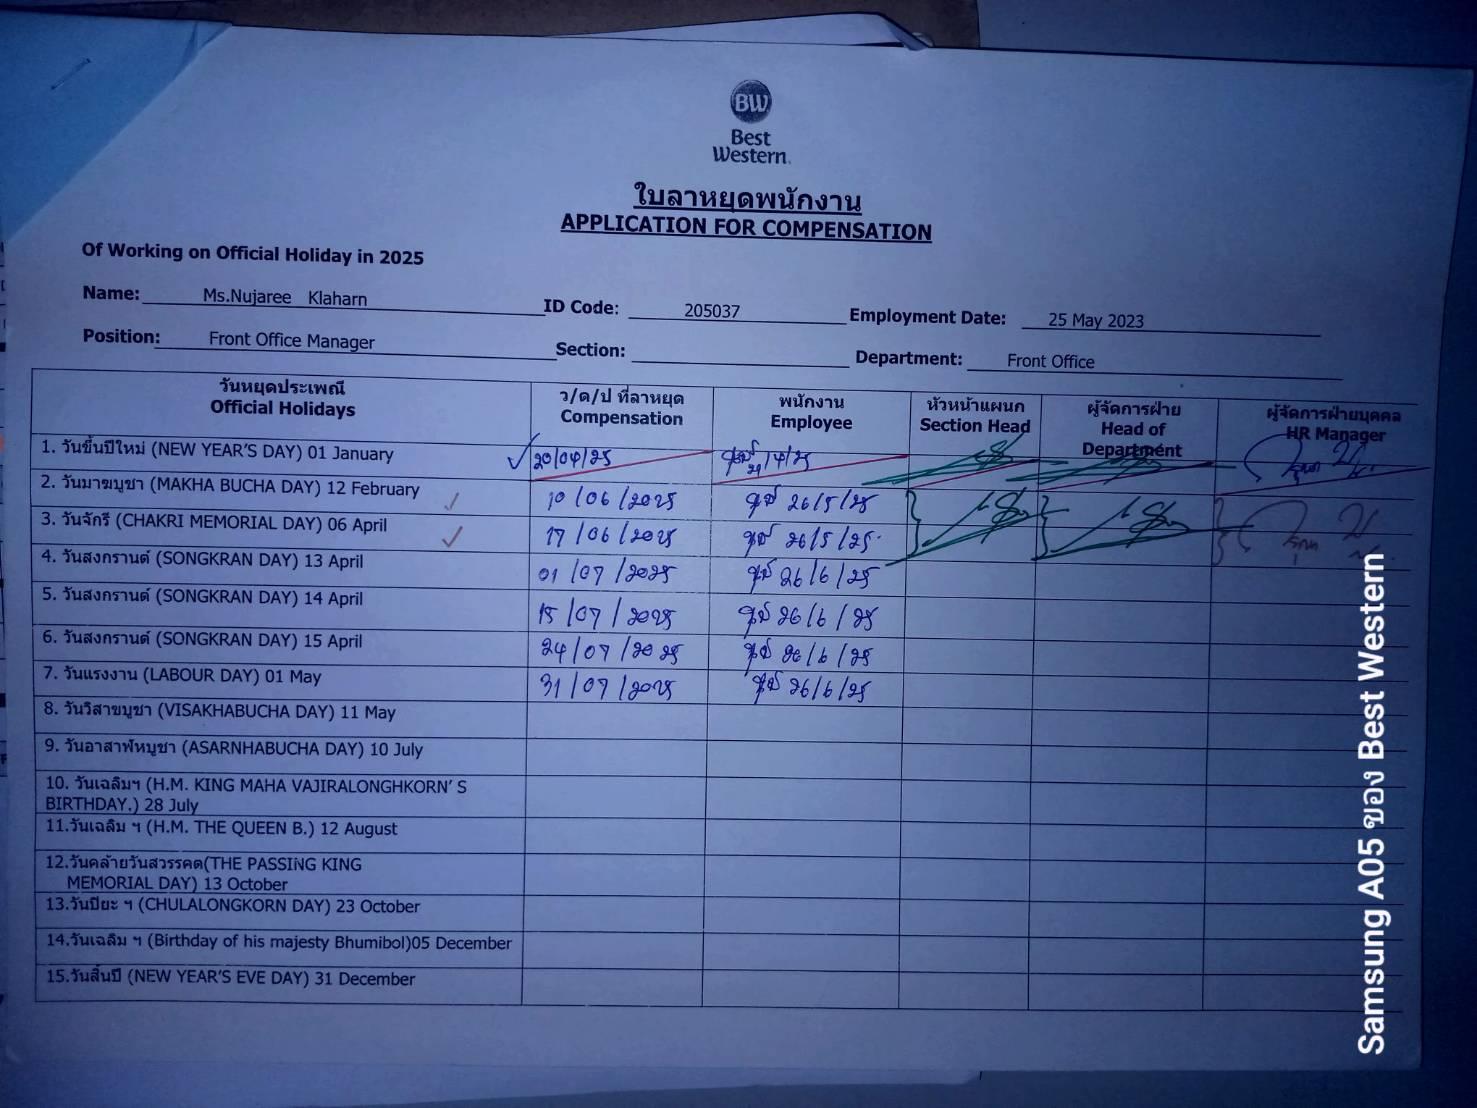 BW
Best
Western.
ใบลาหยุดพนักงาน
APPLICATION FOR COMPENSATION
Of Working on Official Holiday in 2025
Name: Ms.Nujaree Klaharn ID Code: 205037 Employment Date: 25 May 2023
Position: Front Office Manager Section: Department: Front Office
วันหยุดประเพณี ว/ด/ป ที่ลาหยุด พนักงาน หัวหน้าแผนก ผู้จัดการฝ่าย ผู้จัดการฝ่ายบุคคล
Official Holidays Compensation Employee Section Head Head of Department HR Manager
1. วันขึ้นปีใหม่ (NEW YEAR'S DAY) 01 January 20/04/25
2. วันมาฆบูชา (MAKHA BUCHA DAY) 12 February 10/06/2025 26/5/25
3. วันจักรี (CHAKRI MEMORIAL DAY) 06 April 17/06/2025 26/5/25
4. วันสงกรานต์ (SONGKRAN DAY) 13 April 01/07/2025 26/6/25
5. วันสงกรานต์ (SONGKRAN DAY) 14 April 15/07/2025 26/6/25
6. วันสงกรานต์ (SONGKRAN DAY) 15 April 24/07/2025 26/6/25
7. วันแรงงาน (LABOUR DAY) 01 May 31/07/2025 26/6/25
8. วันวิสาขบูชา (VISAKHABUCHA DAY) 11 May
9. วันอาสาฬหบูชา (ASARNHABUCHA DAY) 10 July
10. วันเฉลิมฯ (H.M. KING MAHA VAJIRALONGHKORN' S
BIRTHDAY.) 28 July
11.วันเฉลิม ฯ (H.M. THE QUEEN B.) 12 August
12.วันคล้ายวันสวรรคต(THE PASSING KING
MEMORIAL DAY) 13 October
13.วันปิยะ ฯ (CHULALONGKORN DAY) 23 October
14.วันเฉลิม ฯ (Birthday of his majesty Bhumibol)05 December
15.วันสิ้นปี (NEW YEAR'S EVE DAY) 31 December
Samsung A05 ของ Best Western